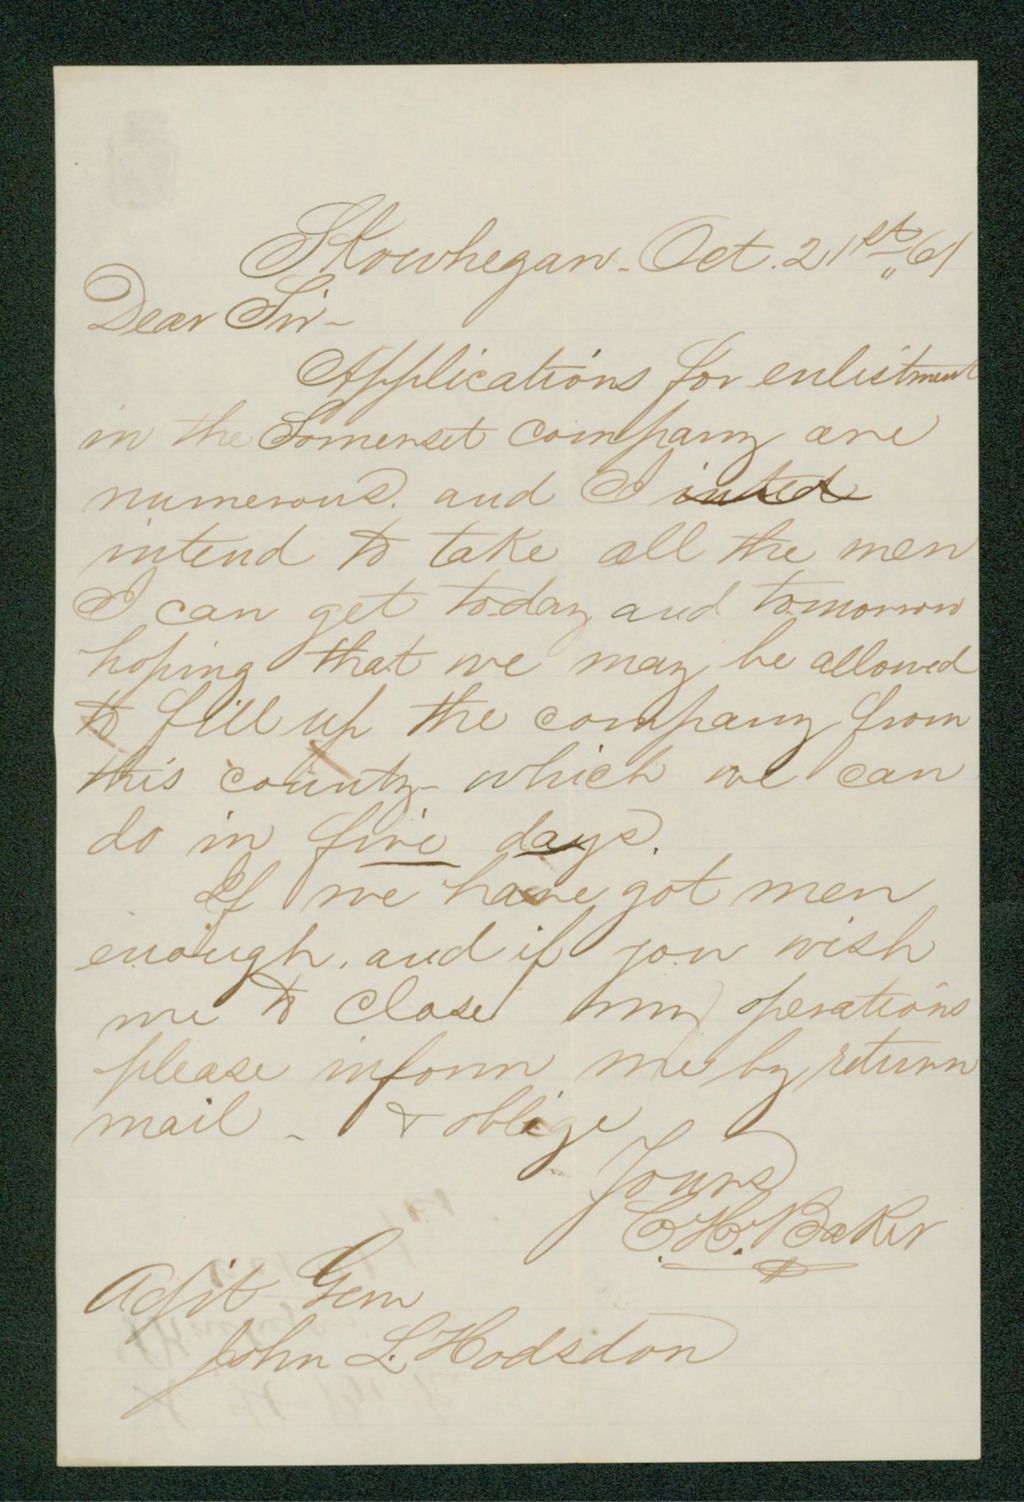 Skowhegan - Oct. 21st "61
Dear Sir -
Applications for enlistment
in the Somerset company are
numerous. and I inted
intend to take all the men
I can get today and tomorrow
hoping that we may be allowed
to fill up the company from
this county - which we can
do in five days.
If we have got men
enough, and if you wish
me to close my operations
please inform me by return
mail - & oblige
Yours
C. H. Baker
Adjt Genn
John L. Hodsdon